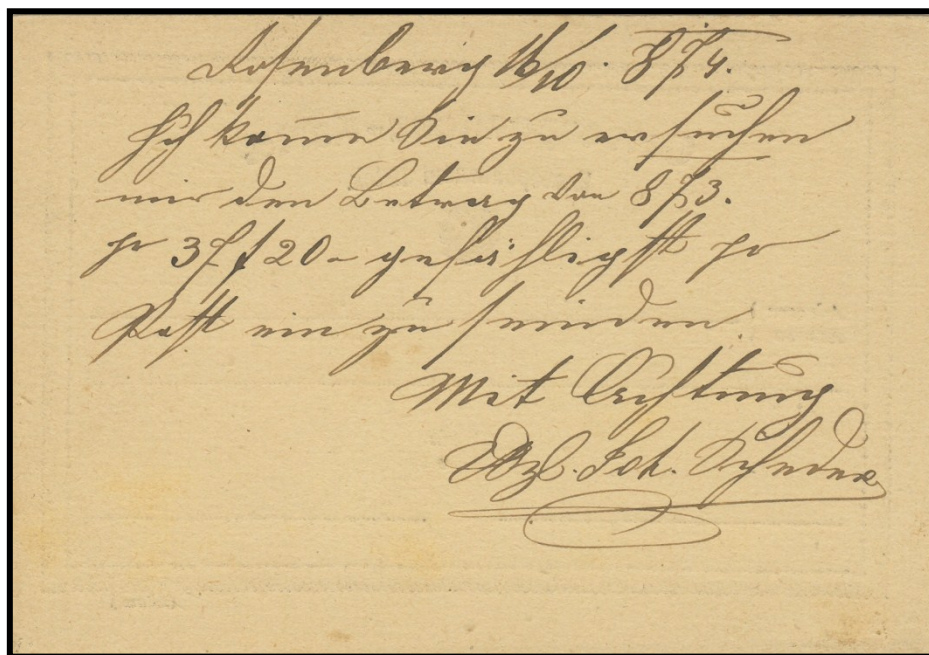 Rosenberg 16/10. 874.
Ich kome Sie zu ersuchen
mir den Betrag von 873.
pr 37 f 20 - gefähligst pr
Post ein zu senden.
Mit Achtung
Joh.